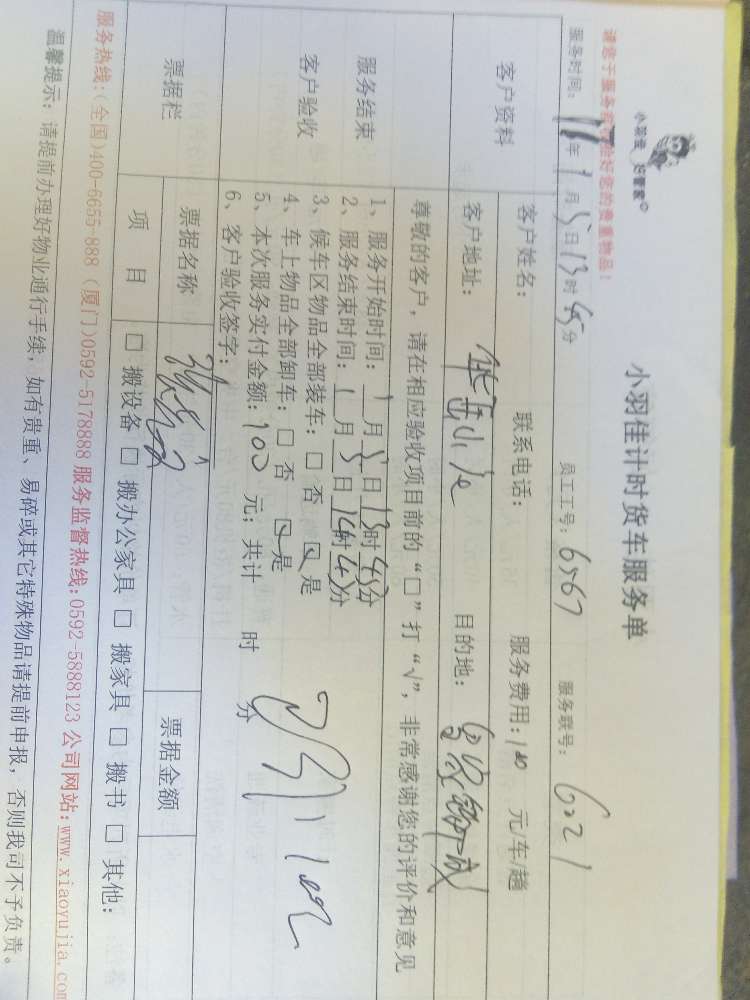 小羽佳 好管家©
小羽佳计时货车服务单
请您于服务前 您的贵重物品!
服务时间: 年1月5日13时45分 员工工号: 6567 服务联号: 6021
客户资料
客户姓名: 联系电话: 服务费用:100 元/车/趟
客户地址: 目的地:
尊敬的客户,请在相应验收项目前的“□”打“√”,非常感谢您的评价和意见
服务结束
客户验收
1、服务开始时间:1月5日13时45分
2、服务结束时间:1月5日14时45分
3、候车区物品全部装车:□ 否 ☑ 是
4、车上物品全部卸车:□ 否 ☑ 是
5、本次服务实付金额:100 元;共计 时 分
6、客户验收签字:
票据栏
票据名称 票据金额
项 目 □ 搬设备 □ 搬办公家具 □ 搬家具 □ 搬书 □ 其他:
服务热线:(全国)400-6655-888 (厦门)0592-5178888 服务监督热线:0592-5888123 公司网站:www.xiaoyujia.com
温馨提示:请提前办理好物业通行手续;如有贵重、易碎或其它特殊物品请提前申报,否则我司不予负责。